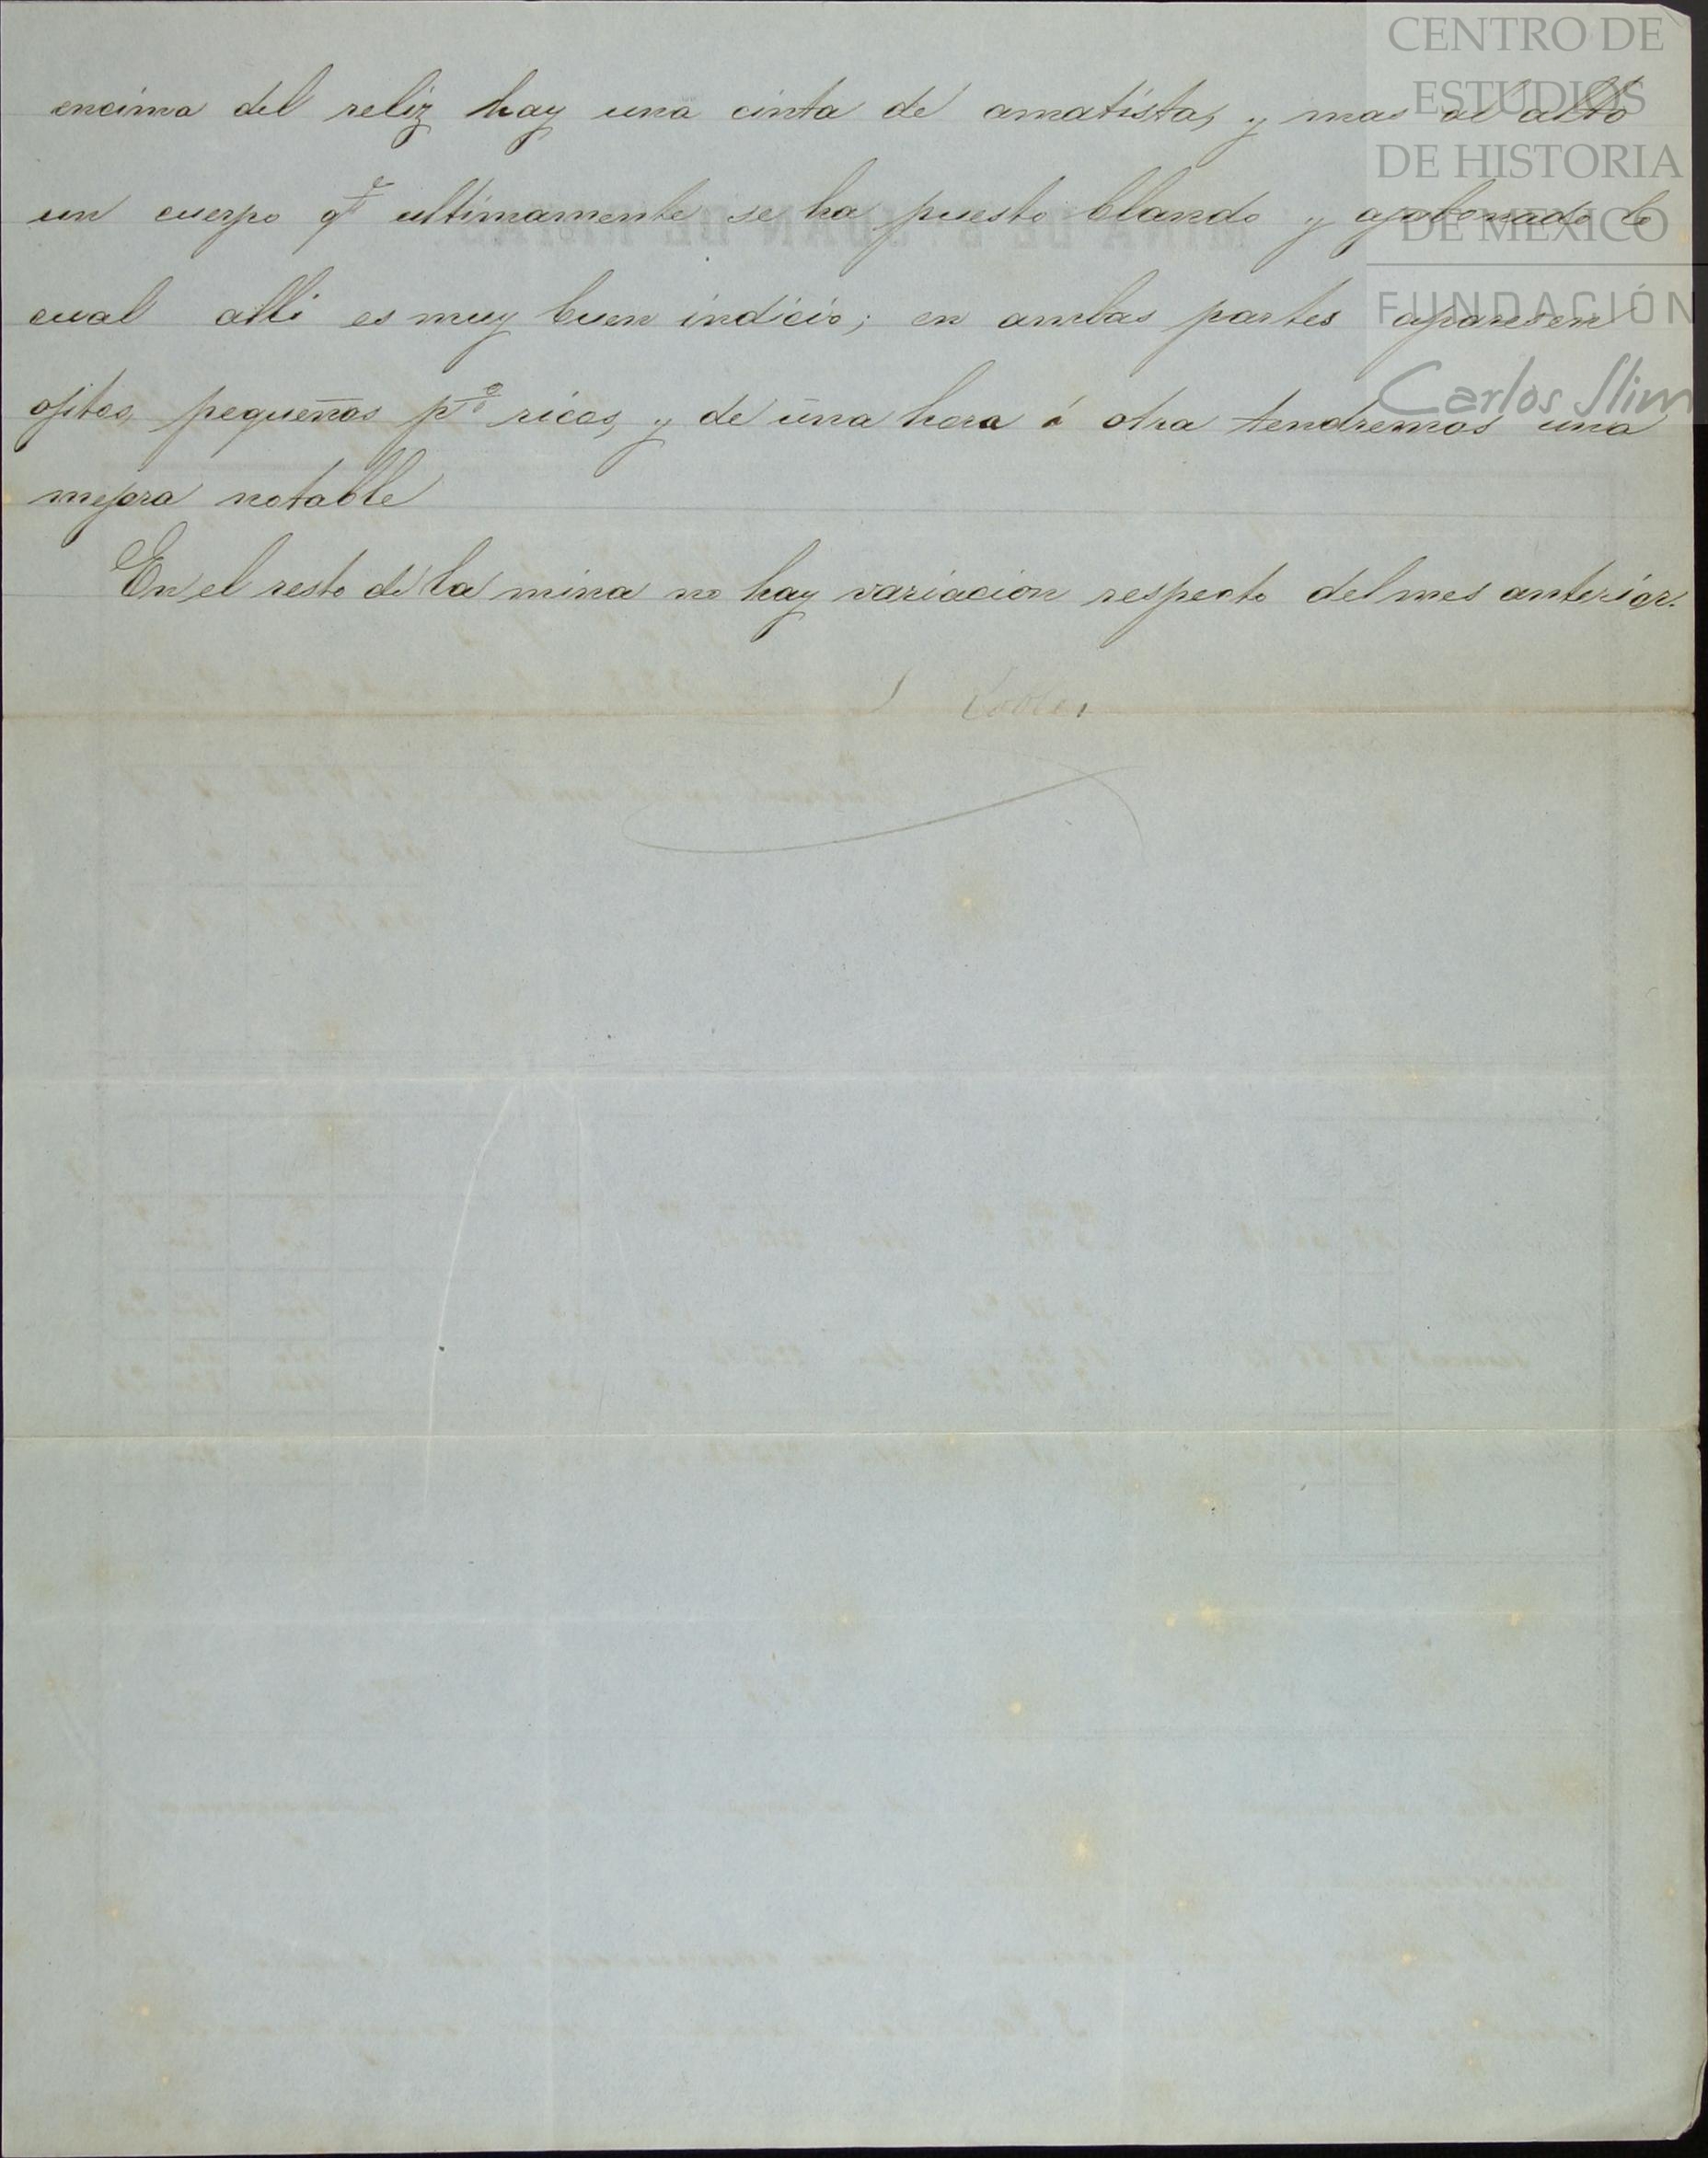 encima del reliz hay una cinta de amatista, y mas al alto
un cuerpo qe ultimamente se ha puesto blando y ajabonado lo
cual alli es muy buen indicio; en ambas partes aparesen
ojitos, pequeños po ricos, y de una hora á otra tendremos una
mejora notable
En el resto de la mina no hay variacion respecto del mes anterior.
CENTRO DE
ESTUDIOS
DE HISTORIA
DE MEXICO
FUNDACIÓN
Carlos Slim